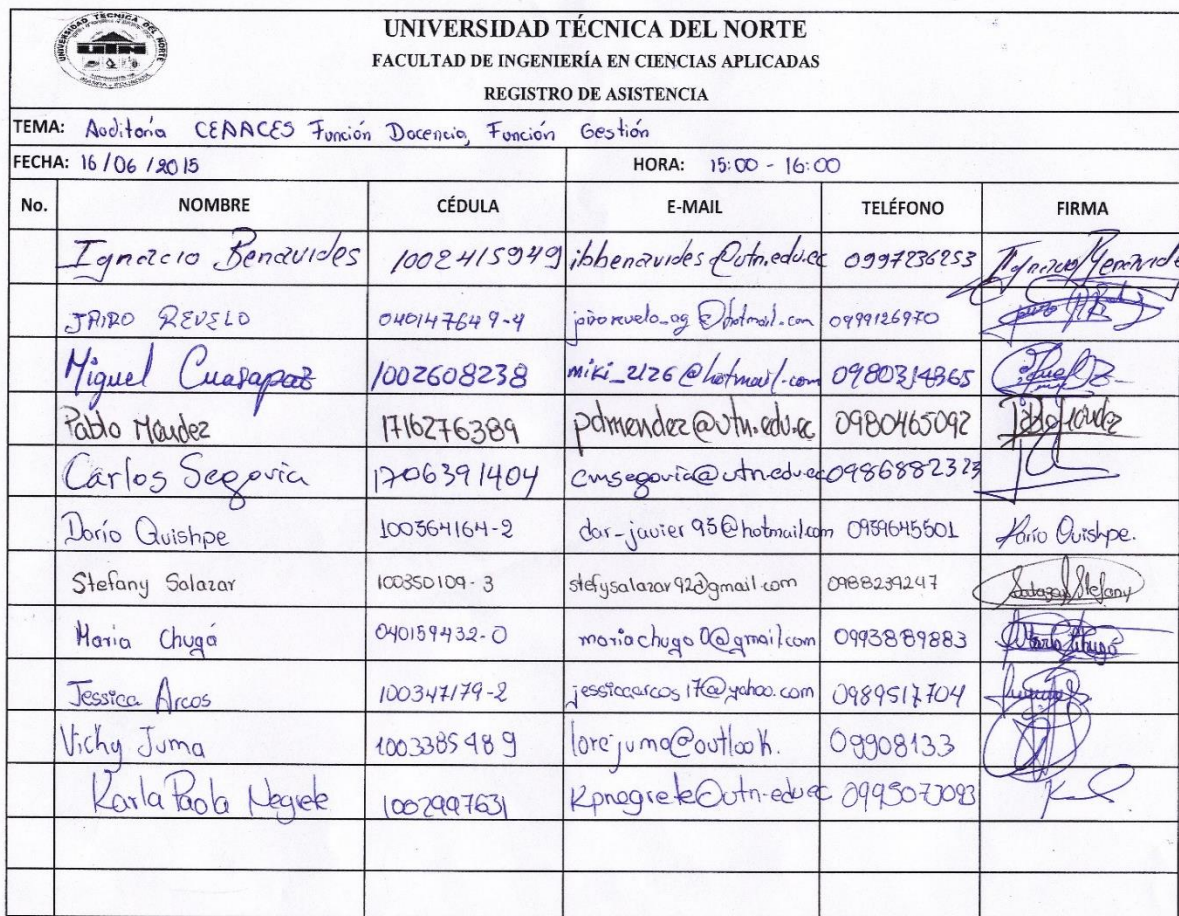 UNIVERSIDAD TÉCNICA DEL NORTE
FACULTAD DE INGENIERÍA EN CIENCIAS APLICADAS
REGISTRO DE ASISTENCIA
TEMA: Auditoría CEAACES Función Docencia, Función Gestión
FECHA: 16/06/2015 HORA: 15:00 - 16:00
No. NOMBRE CÉDULA E-MAIL TELÉFONO FIRMA
Ignacio Benavides 1002415949 ibbenavides@utn.edu.ec 0997236253 Ignacio Benavides
JAIRO REVELO 040147649-4 jairorevelo_og@hotmail.com 0999126970
Miguel Cuasapaz 1002608238 miki_2126@hotmail.com 0980314865
Pablo Méndez 1716276389 pdmendez@utn.edu.ec 0980465092 Pablo Méndez
Carlos Segovia 1706391404 cmsegovia@utn.edu.ec 0986882323
Darío Quishpe 100364164-2 dar-javier95@hotmail.com 0959645501 Darío Quishpe.
Stefany Salazar 100350109-3 stefysalazar92@gmail.com 0988239247 Salazar Stefany
María Chugá 040159432-0 mariachuga0@gmail.com 0993889883 María Chugá
Jessica Arcos 100347179-2 jessicaarcos17@yahoo.com 0989517704
Vichy Juma 1003385489 lorejuma@outlook. 09908133
Karla Paola Negrete 1002997631 kpnegrete@utn.edu.ec 0995073093